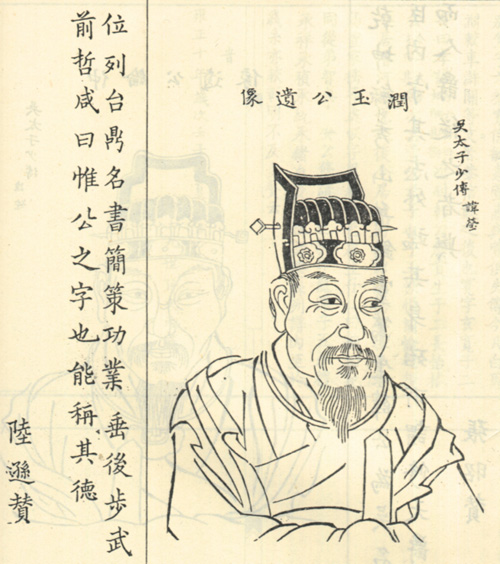 潤玉公遺像
吳太子少傅 諱瑩
位列台鼎名書簡策功業垂後步武
前哲咸曰惟公之字也能稱其德
陸遜賛